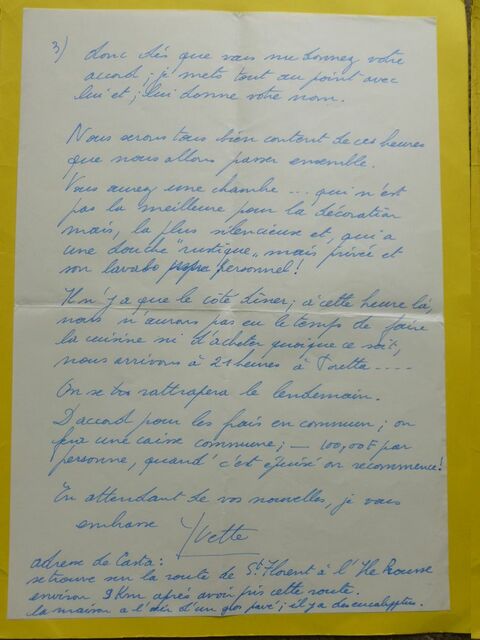 3) donc dès que vous me donnez votre
accord ; je mets tout au point avec
lui et ; lui donne votre nom.
Nous serons tous bien content de ces heures
que nous allons passer ensemble.
Vous aurez une chambre ... qui n'est
pas la meilleure pour la décoration
mais, la plus silencieuse et, qui a
une douche "rustique" mais privée et
son lavabo personnel !
Il n'y a que le côté dîner ; à cette heure là,
nous n'aurons pas eu le temps de faire
la cuisine ni d'acheter quoique ce soit,
nous arrivons à 21 heures à Poretta ....
On se rattrapera le lendemain.
D'accord pour les frais en commun ; on
fera une caisse commune ; — 100,00F par
personne, quand c'est épuisé on recommence !
En attendant de vos nouvelles, je vous
embrasse Yvette
adresse de Casta :
se trouve sur la route de St Florent à l'Ile Rousse
environ 9 Km après avoir pris cette route.
la maison a l'air d'un gros pavé ; il y a des eucalyptus.